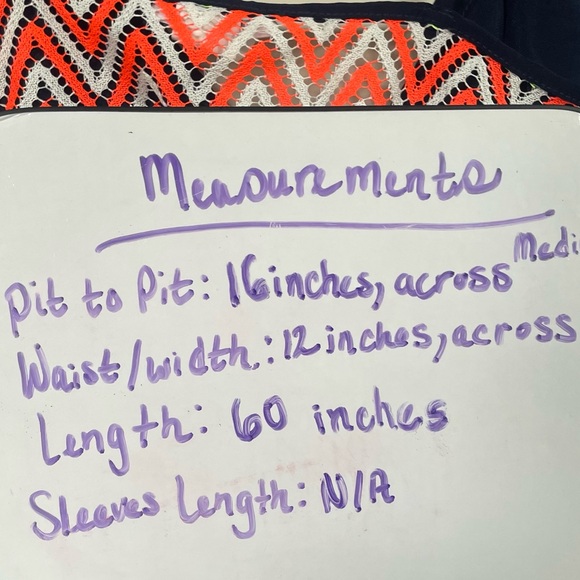 Measurements
Pit to Pit: 16 inches, across
Medi
Waist/width: 12 inches, across
Length: 60 inches
Sleeves Length: N/A